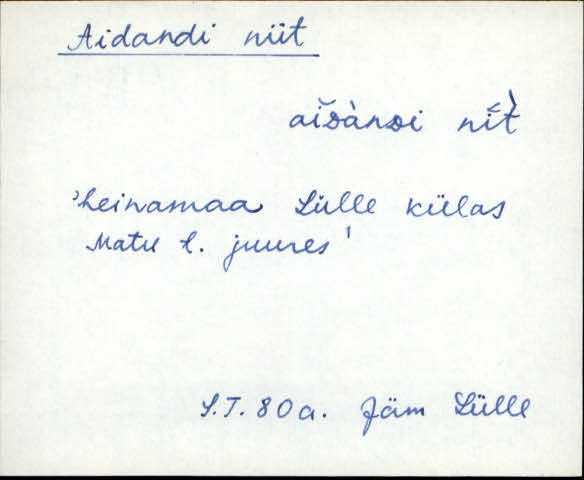 Aidandi niit
aĭᴅànᴅi nī̆t̀
'heinamaa Lülle külas
Matu t. juures'
S.T. 80a. Jäm Lülle